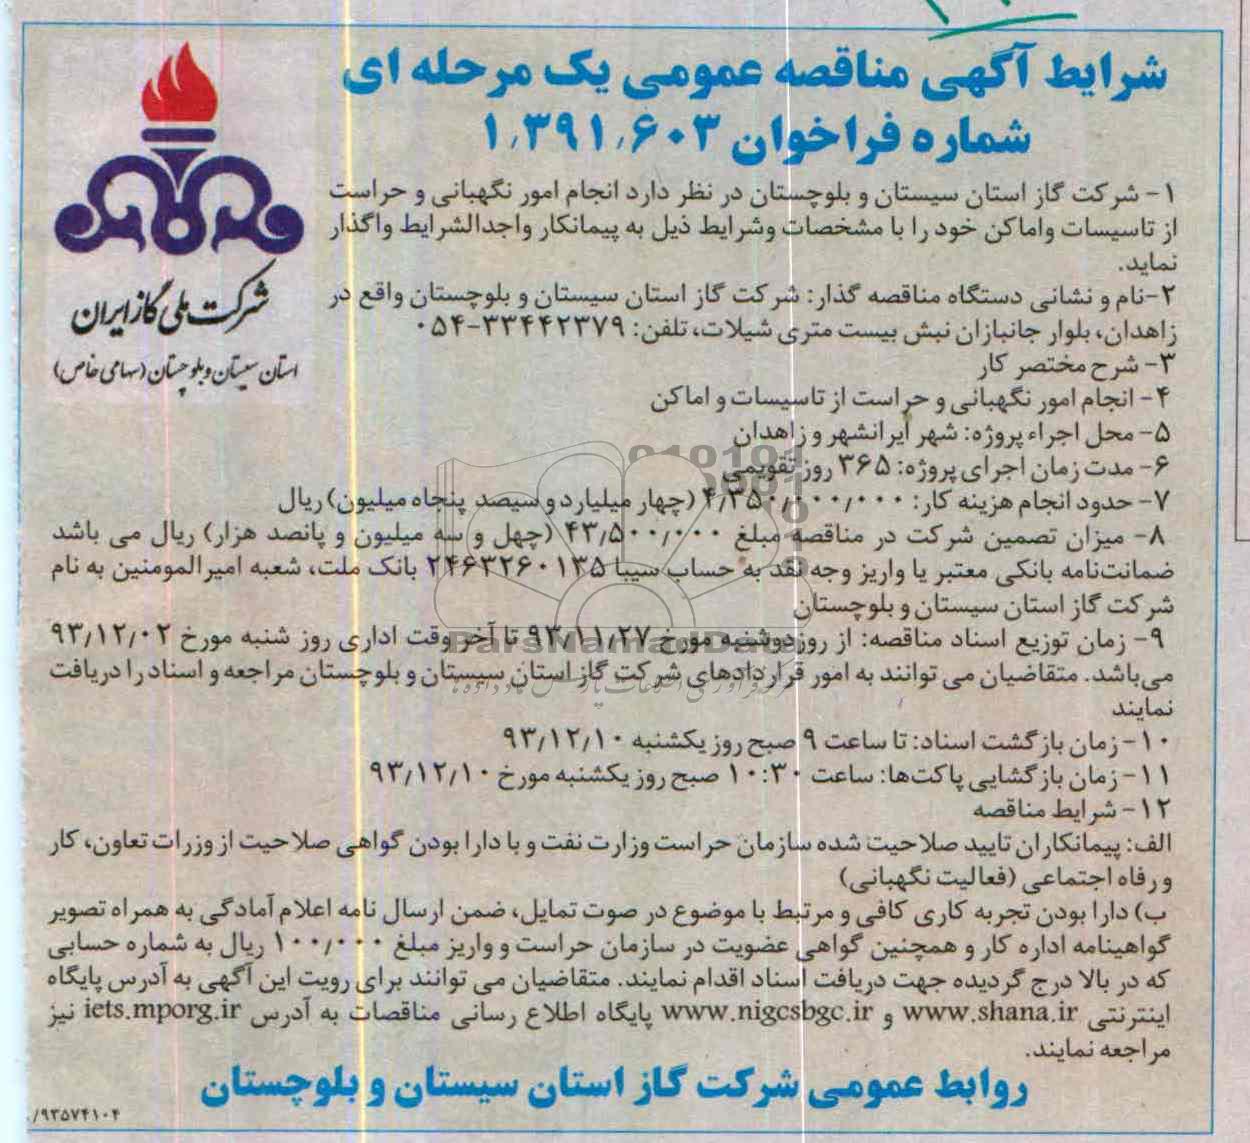 شرایط آگهی مناقصه عمومی یک مرحله ای
شماره فراخوان ۱,۳۹۱,۶۰۳
شرکت ملی گاز ایران
استان سیستان و بلوچستان (سهامی خاص)
۱- شرکت گاز استان سیستان و بلوچستان در نظر دارد انجام امور نگهبانی و حراست
از تاسیسات واماکن خود را با مشخصات وشرایط ذیل به پیمانکار واجدالشرایط واگذار
نماید.
۲-نام و نشانی دستگاه مناقصه گذار: شرکت گاز استان سیستان و بلوچستان واقع در
زاهدان، بلوار جانبازان نبش بیست متری شیلات، تلفن: ۳۳۴۴۲۳۷۹-۰۵۴
۳- شرح مختصر کار
۴- انجام امور نگهبانی و حراست از تاسیسات و اماکن
۵- محل اجراء پروژه: شهر ایرانشهر و زاهدان
۶- مدت زمان اجرای پروژه: ۳۶۵ روز تقویمی
۷- حدود انجام هزینه کار: ۴,۳۵۰,۰۰۰,۰۰۰ (چهار میلیارد و سیصد پنجاه میلیون) ریال
۸- میزان تصمین شرکت در مناقصه مبلغ ۴۳,۵۰۰,۰۰۰ (چهل و سه میلیون و پانصد هزار) ریال می باشد
ضمانت‌نامه بانکی معتبر یا واریز وجه نقد به حساب سیبا ۲۴۶۳۲۶۰۱۳۵ بانک ملت، شعبه امیرالمومنین به نام
شرکت گاز استان سیستان و بلوچستان
۹- زمان توزیع اسناد مناقصه: از روزدوشنبه مورخ ۹۳/۱۱/۲۷ تا آخر وقت اداری روز شنبه مورخ ۹۳/۱۲/۰۲
می‌باشد. متقاضیان می توانند به امور قراردادهای شرکت گاز استان سیستان و بلوچستان مراجعه و اسناد را دریافت
نمایند
۱۰- زمان بازگشت اسناد: تا ساعت ۹ صبح روز یکشنبه ۹۳/۱۲/۱۰
۱۱- زمان بازگشایی پاکت‌ها: ساعت ۱۰:۳۰ صبح روز یکشنبه مورخ ۹۳/۱۲/۱۰
۱۲- شرایط مناقصه
الف: پیمانکاران تایید صلاحیت شده سازمان حراست وزارت نفت و با دارا بودن گواهی صلاحیت از وزرات تعاون، کار
و رفاه اجتماعی (فعالیت نگهبانی)
ب) دارا بودن تجربه کاری کافی و مرتبط با موضوع در صوت تمایل، ضمن ارسال نامه اعلام آمادگی به همراه تصویر
گواهینامه اداره کار و همچنین گواهی عضویت در سازمان حراست و واریز مبلغ ۱۰۰,۰۰۰ ریال به شماره حسابی
که در بالا درج گردیده جهت دریافت اسناد اقدام نمایند. متقاضیان می توانند برای رویت این آگهی به آدرس پایگاه
اینترنتی www.shana.ir و www.nigcsbgc.ir پایگاه اطلاع رسانی مناقصات به آدرس iets.mporg.ir نیز
مراجعه نمایند.
روابط عمومی شرکت گاز استان سیستان و بلوچستان
۹۳۵۷۴۱۰۴/
ParsNamadData